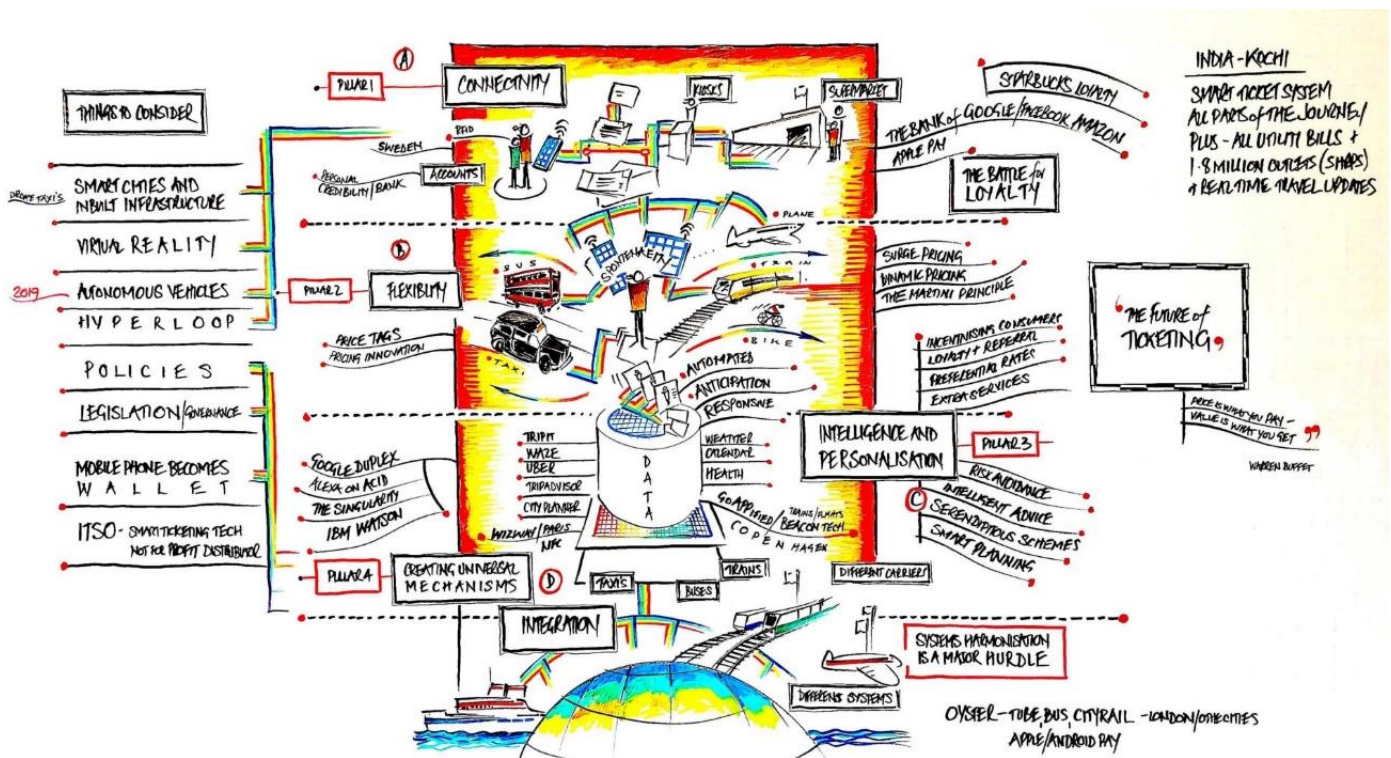 THINGS TO CONSIDER
SMART CITIES AND
INBUILT INFRASTRUCTURE
DRONE TAXI'S
VIRTUAL REALITY
2019
AUTONOMOUS VEHICLES
HYPERLOOP
POLICIES
LEGISLATION/GOVERNANCE
MOBILE PHONE BECOMES
WALLET
ITSO - SMART TICKETING TECH
NOT FOR PROFIT DISTRIBUTOR
PILLAR 1
A
CONNECTIVITY
RFID
SWEDEN
PERSONAL
CREDIBILITY/BANK
ACCOUNTS
KIOSKS
SUPERMARKET
STARBUCKS LOYALTY
THE BANK of GOOGLE/FACEBOOK AMAZON
APPLE PAY
THE BATTLE for
LOYALTY
INDIA - KOCHI
SMART TICKET SYSTEM
ALL PARTS of THE JOURNEY/
PLUS - ALL UTILITI BILLS +
1.8 MILLION OUTLETS (SHOPS)
+ REAL TIME TRAVEL UPDATES
B
PILLAR 2
FLEXIBLITY
PRICE TAGS
PRICING INNOVATION
BUS
TAXI
SPONTENAEITY
PLANE
TRAIN
BIKE
SURGE PRICING
DYNAMIC PRICING
THE MARTINI PRINCIPLE
INCENTIVISING CONSUMERS
LOYALTY + REFERRAL
PREFERENTIAL RATES
EXTRA SERVICES
"THE FUTURE of
TICKETING"
PRICE IS WHAT YOU PAY -
VALUE IS WHAT YOU GET"
WARREN BUFFET
AUTOMATED
ANTICIPATION
RESPONSIVE
DATA
TRIPIT
WAZE
UBER
TRIPADVISOR
CITY PLANNER
WIZWAY/PARIS
NFC
WEATHER
CALENDAR
HEALTH
GO APPIFIED/TRAINS/FLIGHTS
BEACON TECH
COPENHAGEN
GOOGLE DUPLEX
ALEXA ON ACID
THE SINGULARITY
IBM WATSON
INTELLIGENCE AND
PERSONALISATION
PILLAR 3
C
RISK AVOIDANCE
INTELLIGENT ADVICE
SERENDIPITOUS SCHEMES
SMART PLANNING
PILLAR 4
CREATING UNIVERSAL
MECHANISMS
D
INTEGRATION
TAXI'S
BUSES
TRAINS
DIFFERENT CARRIERS
DIFFERENT SYSTEMS
SYSTEMS HARMONISATION
IS A MAJOR HURDLE
OYSTER - TUBE, BUS, CITYRAIL - LONDON/OTHER CITIES
APPLE/ANDROID PAY